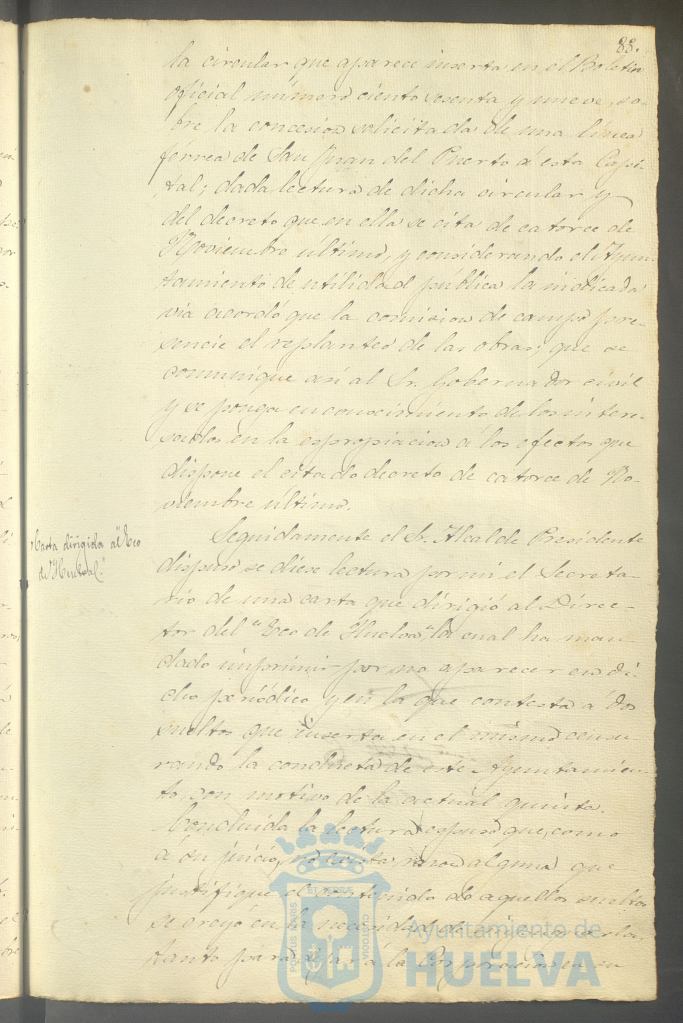 88.
la circular que aparece inserta en el Boletin
oficial número ciento sesenta y nueve, so-
bre la concesion solicitada de una línea
férrea de San Juan del Puerto á esta Capi-
tal; dada lectura de dicha circular y
del decreto que en ella se cita de catorce de
Noviembre último, y considerando el Ayun-
tamiento de utilidad pública la indicada
via acordó que la comision de campo pre-
sencie el replanteo de las obras; que se
comunique asi al Sr. Gobernador civil
y se ponga en conocimiento de los intere-
sados en la espropiacion a los efectos que
dispone el citado decreto de catorce de No-
viembre ultimo.
Carta dirigida al "Eco
de Huelva."
Seguidamente el Sr. Alcalde Presidente
dispuso se diese lectura por mi el Secreta-
rio de una carta que dirigió al Direc-
tor del "Eco de Huelva", la cual ha man-
dado imprimir por no aparecer en di-
cho periódico y en la que contesta á dos
sueltos que inserta en el mismo censu-
rando la conducta de este Ayuntamien-
to, con motivo de la actual quinta.
Concluida la lectura espuso que, como
á su juicio, no exista razon alguna que
justifique el contenido de aquellos sueltos
se creyó en la necesidad de
tanto para dejar á la Corporacion en su
PORTUS MARIS ET TERRÆ CUSTODIA
Ayuntamiento de
HUELVA